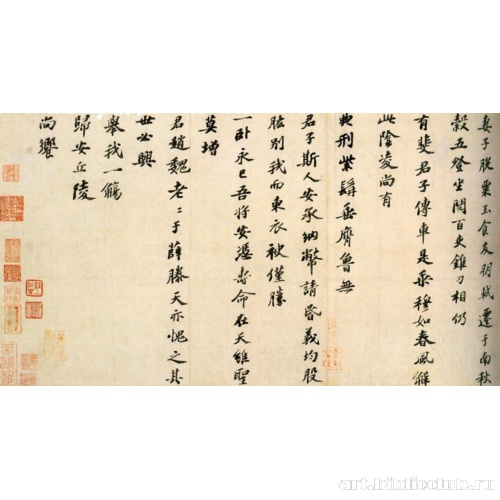 妻子脱粟玉食友朋軾遷于南秋
穀五登坐閱百吏錐刀相仍
有斐君子傳車是乘穆如春風解
此陰凌尚有
典刑紫髯垂膺魯無
君子斯人安承納幣請昏義均股
肱別我而東衣袂僅勝
一卧永已吾將安憑壽命在天雖聖
莫增
君趙魏老老于薛滕天亦愧之其
世必興
舉我一觴
歸安丘陵
尚饗
art.biblioclub.ru